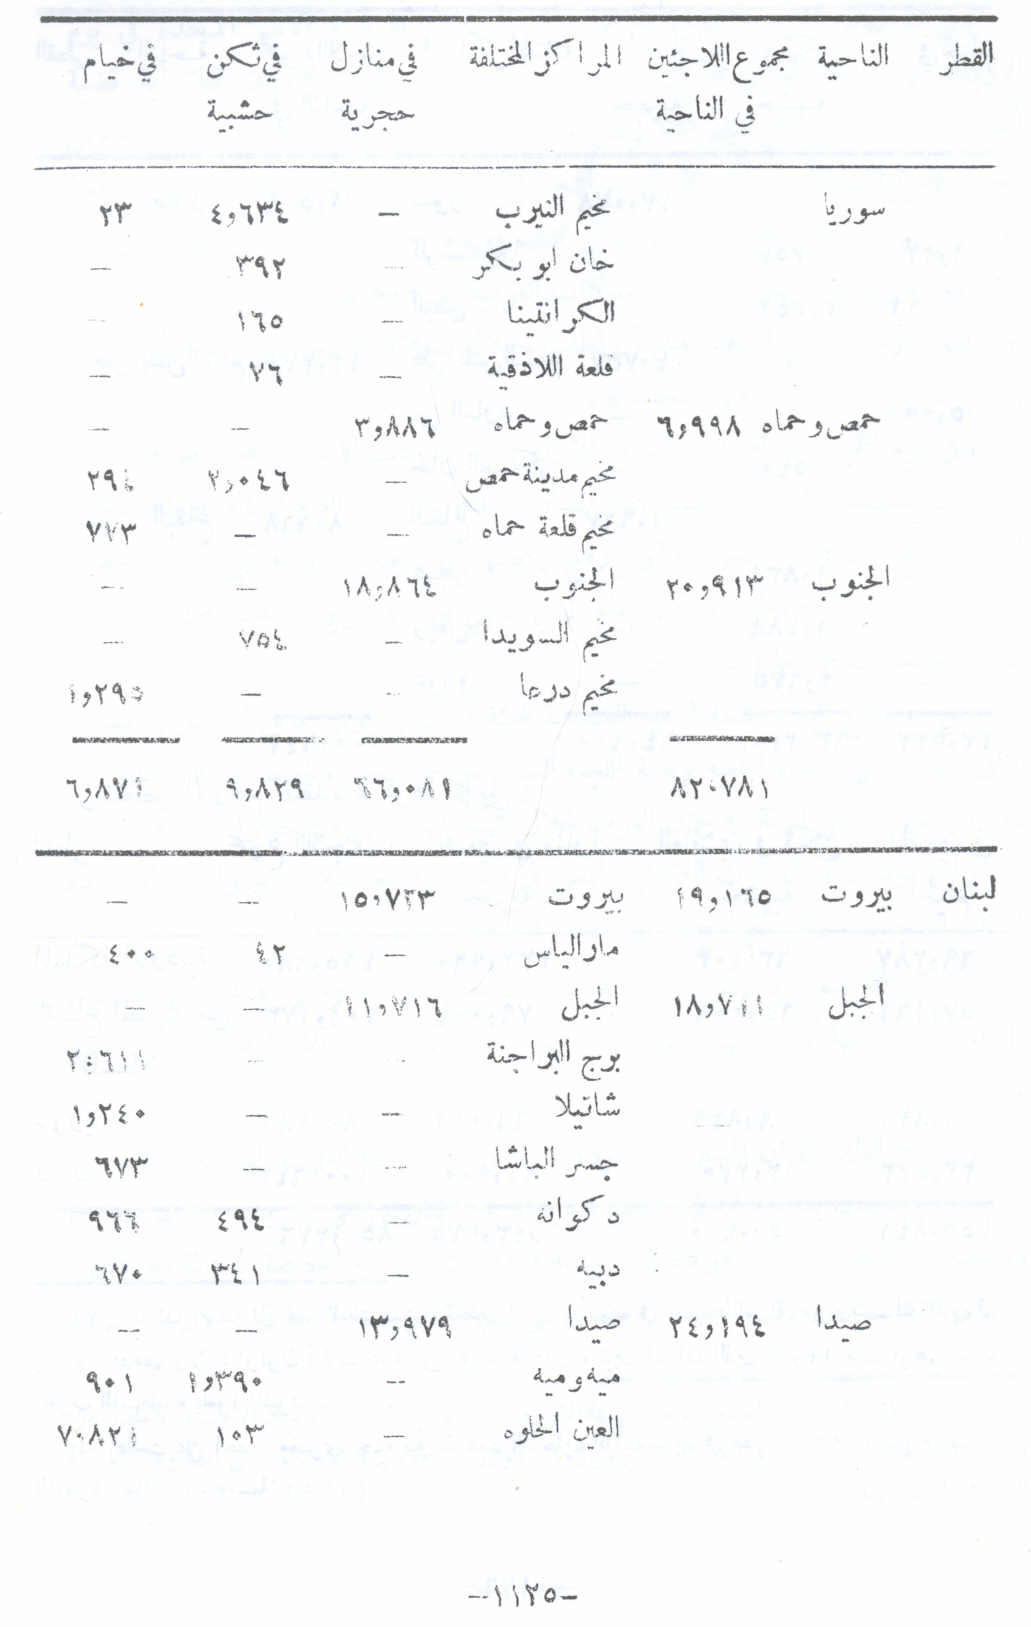 القطر الناحية مجموع اللاجئين المراكز المختلفة في منازل في ثكن في خيام
في الناحية حجرية خشبية
سوريا مخيم النيرب — ٤٫٦٣٤ ٢٣
خان ابو بكر — ٣٩٢ —
الكرانتينا — ١٦٥ —
قلعة اللاذقية — ٧٦ —
حمص وحماه ٦٫٩٩٨ حمص وحماه ٣٫٨٨٦ — —
مخيم مدينة حمص — ٢٫٠٤٦ ٢٩٤
مخيم قلعة حماه — — ٧٧٣
الجنوب ٢٠٫٩١٣ الجنوب ١٨٫٨٦٤ — —
مخيم السويدا — ٧٥٤ —
مخيم درعا — — ١٫٢٩٥
٨٢٠٧٨١ ٦٦٫٠٨١ ٩٫٨٢٩ ٦٫٨٧١
لبنان بيروت ١٩٫١٦٥ بيروت ١٥٫٧٢٣ — —
مار الياس — ٤٢ ٤٠٠
الجبل ١٨٫٧١١ الجبل ١١٫٧١٦ — —
برج البراجنة — — ٢٠٦١١
شاتيلا — — ١٫٢٤٠
جسر الباشا — — ٦٧٣
دكوانه — ٤٩٤ ٩٦٦
دبيه — ٣٤١ ٦٧٠
صيدا ٢٤٫١٩٤ صيدا ١٣٫٩٧٩ — —
ميه وميه — ١٫٣٩٠ ٩٠١
العين الحلوه — ١٠٣ ٧٠٨٢١
-١١٢٥-